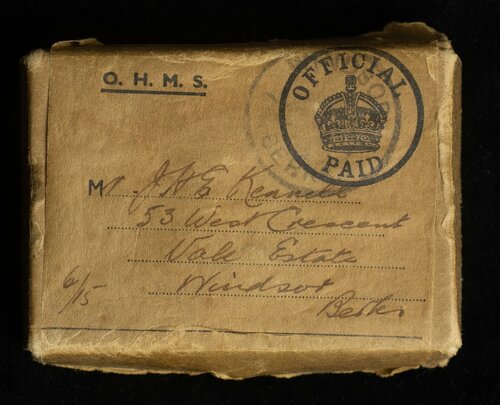 O. H. M. S.
OFFICIAL
PAID
Mr. J H E
53 West Crescent
Vale Estate
Windsor
Berks
6/15